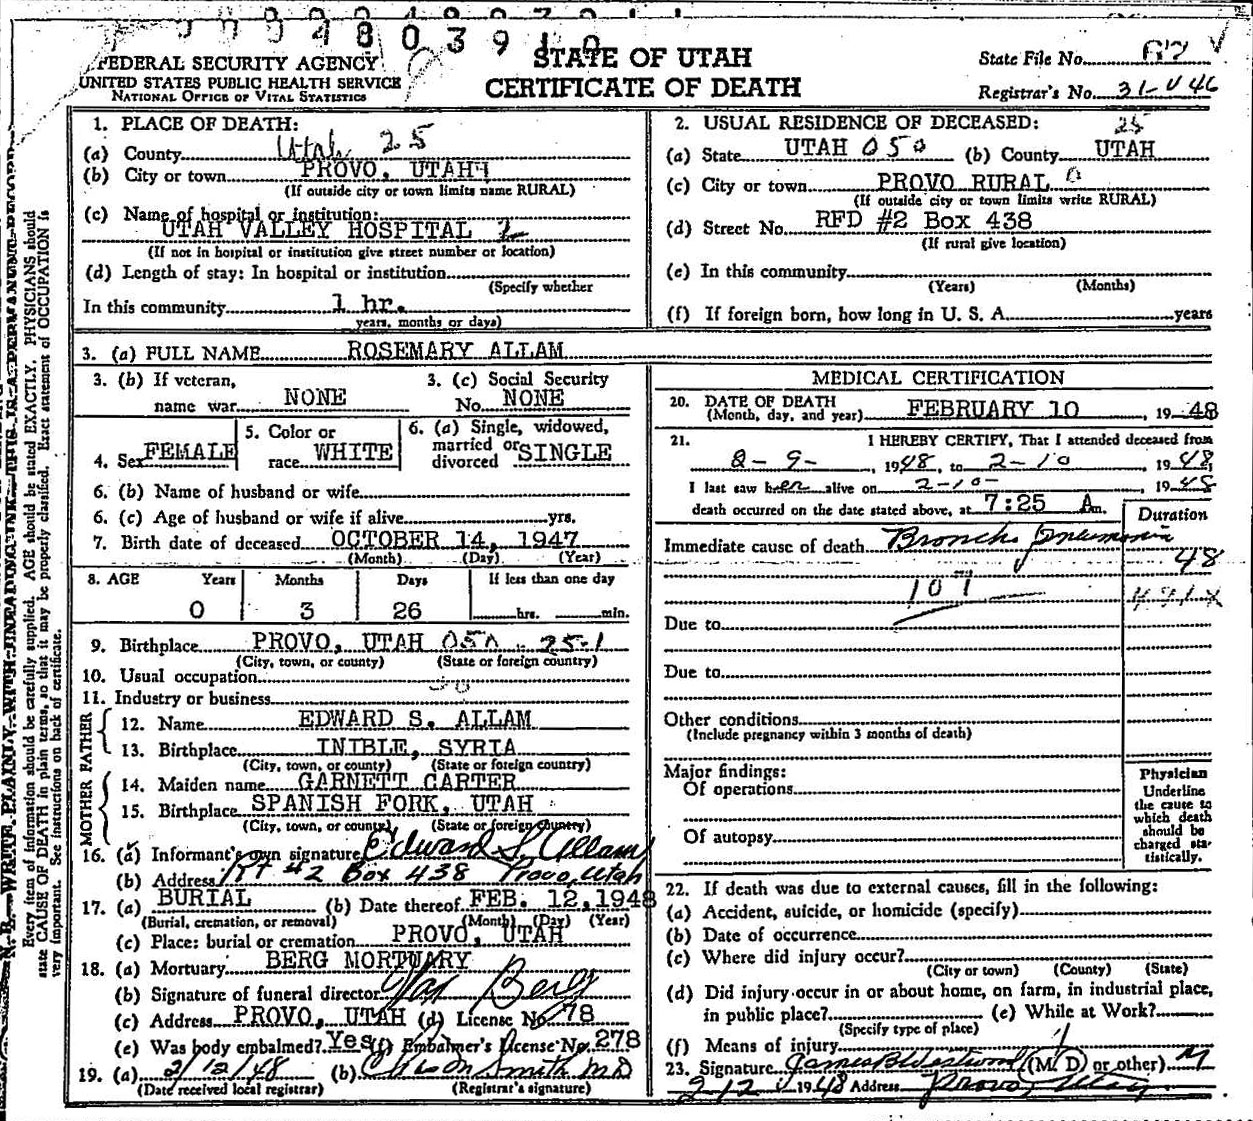 4 8 0 3 9 1 0
FEDERAL SECURITY AGENCY
UNITED STATES PUBLIC HEALTH SERVICE
NATIONAL OFFICE OF VITAL STATISTICS
STATE OF UTAH
CERTIFICATE OF DEATH
State File No. 67
Registrar's No. 31-V46
1. PLACE OF DEATH:
(a) County Utah 25
(b) City or town PROVO, UTAH
(If outside city or town limits name RURAL)
(c) Name of hospital or institution:
UTAH VALLEY HOSPITAL 2
(If not in hospital or institution give street number or location)
(d) Length of stay: In hospital or institution
(Specify whether
In this community 1 hr.
years, months or days)
2. USUAL RESIDENCE OF DECEASED: 25
(a) State UTAH 050 (b) County UTAH
(c) City or town PROVO RURAL 0
(If outside city or town limits write RURAL)
(d) Street No. RFD #2 Box 438
(If rural give location)
(e) In this community
(Years) (Months)
(f) If foreign born, how long in U. S. A. years
3. (a) FULL NAME ROSEMARY ALLAM
3. (b) If veteran, name war NONE
3. (c) Social Security No. NONE
4. Sex FEMALE
5. Color or race WHITE
6. (a) Single, widowed, married or divorced SINGLE
6. (b) Name of husband or wife
6. (c) Age of husband or wife if alive yrs.
7. Birth date of deceased OCTOBER 14, 1947
(Month) (Day) (Year)
8. AGE Years Months Days If less than one day
0 3 26 hrs. min.
9. Birthplace PROVO, UTAH 050 - 25-1
(City, town, or county) (State or foreign country)
10. Usual occupation
11. Industry or business
FATHER
12. Name EDWARD S. ALLAM
13. Birthplace INIBLE, SYRIA
(City, town, or county) (State or foreign country)
MOTHER
14. Maiden name GARNETT CARTER
15. Birthplace SPANISH FORK, UTAH
(City, town, or county) (State or foreign country)
16. (a) Informant's own signature Edward S. Allam
(b) Address Rt #2 Box 438 Provo, Utah
17. (a) BURIAL (b) Date thereof FEB. 12, 1948
(Burial, cremation, or removal) (Month) (Day) (Year)
(c) Place: burial or cremation PROVO, UTAH
18. (a) Mortuary BERG MORTUARY
(b) Signature of funeral director Max Berg
(c) Address PROVO, UTAH (d) License No. 78
(e) Was body embalmed? Yes (f) Embalmer's License No. 278
19. (a) 2/12/48 (b) Smith M D
(Date received local registrar) (Registrar's signature)
MEDICAL CERTIFICATION
20. DATE OF DEATH
(Month, day, and year) FEBRUARY 10, 19 48
21. I HEREBY CERTIFY, That I attended deceased from
2-9-, 1948, to 2-10, 1948,
I last saw her alive on 2-10-, 1948
death occurred on the date stated above, at 7:25 Am.
Duration
Immediate cause of death Broncho pneumonia
48
107
Due to
Due to
Other conditions
(Include pregnancy within 3 months of death)
Major findings:
Of operations
Of autopsy
Physician
Underline
the cause to
which death
should be
charged sta-
tistically.
22. If death was due to external causes, fill in the following:
(a) Accident, suicide, or homicide (specify)
(b) Date of occurrence
(c) Where did injury occur?
(City or town) (County) (State)
(d) Did injury occur in or about home, on farm, in industrial place,
in public place? (e) While at Work?
(Specify type of place)
(f) Means of injury
23. Signature James B Westwood (M. D) or other) M
2-12 1948 Address Provo, Utah
N. B. WRITE PLAINLY WITH UNFADING INK THIS IS A PERMANENT RECORD
Every item of information should be carefully supplied. AGE should be stated EXACTLY. PHYSICIANS should
state CAUSE OF DEATH in plain terms, so that it may be properly classified. Exact statement of OCCUPATION is
very important. See instructions on back of certificate.